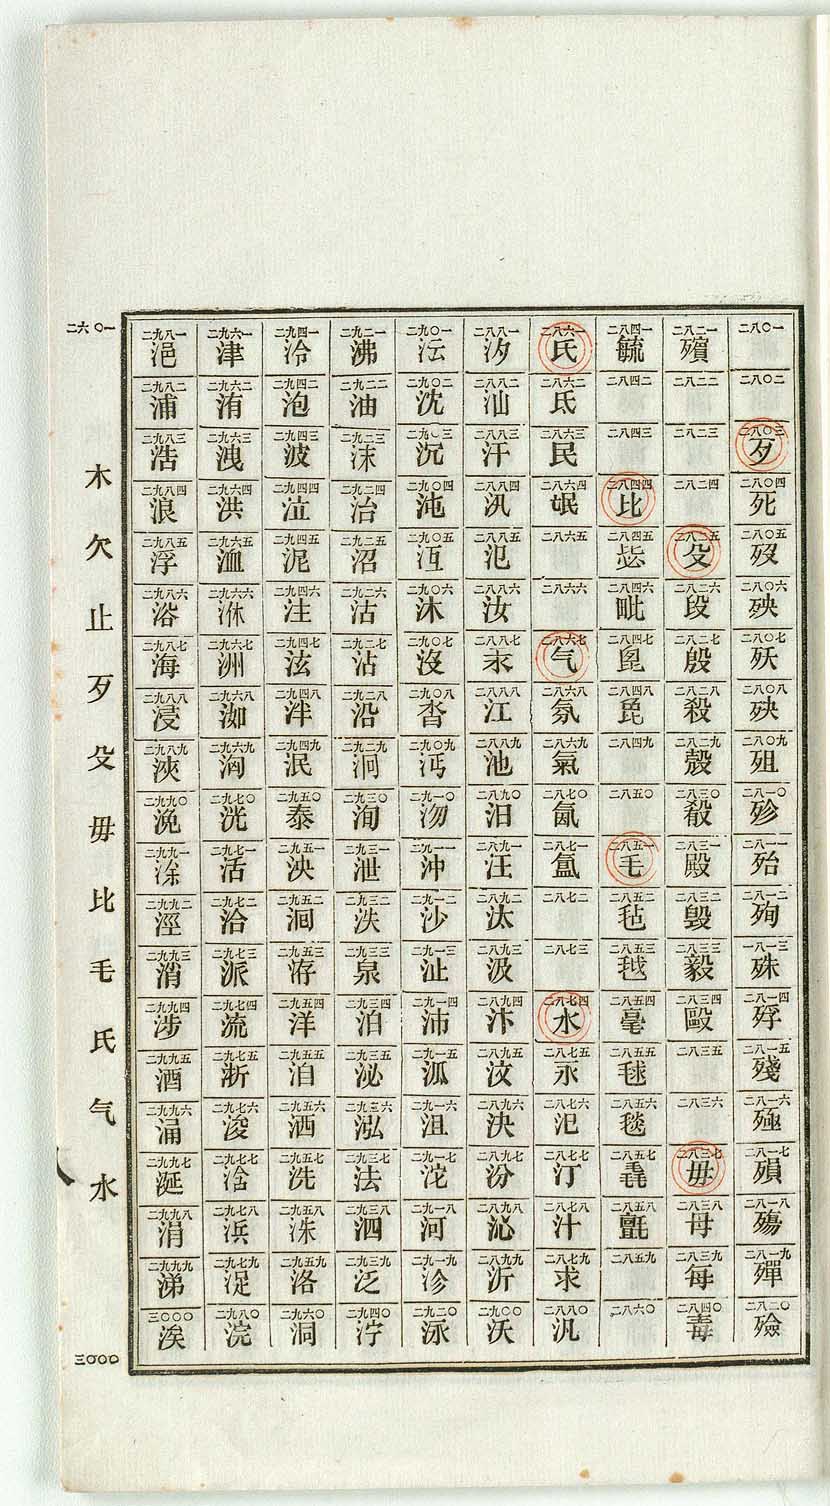 二八〇一 二八〇二 二八〇三歹 二八〇四死 二八〇五歿 二八〇六 二八〇七殀 二八〇八殃 二八〇九殂 二八一〇殄 二八一一殆 二八一二殉 二八一三殊 二八一四殍 二八一五殘 二八一六殛 二八一七殞 二八一八殤 二八一九殫 二八二〇殮
二八二一殯 二八二二 二八二三 二八二四 二八二五殳 二八二六段 二八二七殷 二八二八殺 二八二九殼 二八三〇殽 二八三一殿 二八三二毀 二八三三毅 二八三四毆 二八三五 二八三六 二八三七毋 二八三八母 二八三九每 二八四〇毒
二八四一毓 二八四二 二八四三 二八四四比 二八四五毖 二八四六毗 二八四七毘 二八四八毚 二八四九 二八五〇 二八五一毛 二八五二毡 二八五三毧 二八五四毫 二八五五毬 二八五六毯 二八五七毳 二八五八氈 二八五九 二八六〇
二八六一氏 二八六二氐 二八六三民 二八六四氓 二八六五 二八六六 二八六七气 二八六八氛 二八六九氣 二八七〇氤 二八七一氳 二八七二 二八七三 二八七四水 二八七五永 二八七六氾 二八七七汀 二八七八汁 二八七九求 二八八〇汎
二八八一汐 二八八二汕 二八八三汗 二八八四汛 二八八五汜 二八八六汝 二八八七汞 二八八八江 二八八九池 二八九〇汨 二八九一汪 二八九二汰 二八九三汲 二八九四汴 二八九五汶 二八九六決 二八九七汾 二八九八沁 二八九九沂 二九〇〇沃
二九〇一沄 二九〇二沈 二九〇三沉 二九〇四沌 二九〇五沍 二九〇六沐 二九〇七沒 二九〇八沓 二九〇九沔 二九一〇沕 二九一一沖 二九一二沙 二九一三沚 二九一四沛 二九一五泒 二九一六沮 二九一七沱 二九一八河 二九一九沴 二九二〇泳
二九二一沸 二九二二油 二九二三沫 二九二四治 二九二五沼 二九二六沽 二九二七沾 二九二八沿 二九二九泂 二九三〇洵 二九三一泄 二九三二泆 二九三三泉 二九三四泊 二九三五泌 二九三六泓 二九三七法 二九三八泗 二九三九泛 二九四〇泞
二九四一泠 二九四二泡 二九四三波 二九四四泣 二九四五泥 二九四六注 二九四七泫 二九四八泮 二九四九泯 二九五〇泰 二九五一泱 二九五二洄 二九五三洊 二九五四洋 二九五五洎 二九五六洒 二九五七洗 二九五八洙 二九五九洛 二九六〇洞
二九六一津 二九六二洧 二九六三洩 二九六四洪 二九六五洫 二九六六洑 二九六七洲 二九六八洳 二九六九洶 二九七〇洸 二九七一活 二九七二洽 二九七三派 二九七四流 二九七五浙 二九七六浚 二九七七浛 二九七八浜 二九七九浞 二九八〇浣
二九八一浥 二九八二浦 二九八三浩 二九八四浪 二九八五浮 二九八六浴 二九八七海 二九八八浸 二九八九浹 二九九〇浼 二九九一涂 二九九二涇 二九九三消 二九九四涉 二九九五酒 二九九六涌 二九九七涎 二九九八涓 二九九九涕 三〇〇〇涘
二六〇一
木欠止歹殳毋比毛氏气水
三〇〇〇